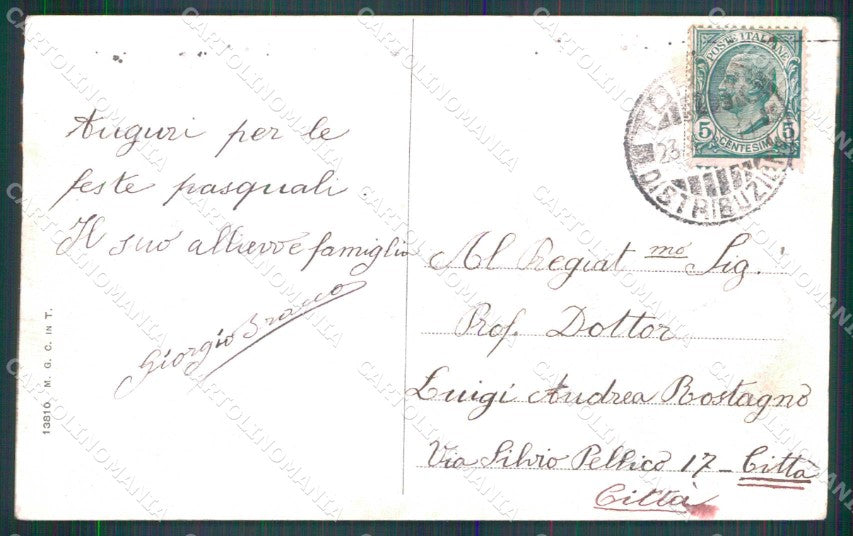 Auguri per le
feste pasquali
Il suo allievo e famiglia
Giorgio
13810 M. G. C. IN T.
POSTE ITALIANE
5 5
CENTESIMI
23
DISTRIBUZIONE
Al Pregiat mo Sig.
Prof. Dottor
Luigi Andrea Rostagno
Via Silvio Pellico 17 - Città
Città
CARTOLINOMANIA